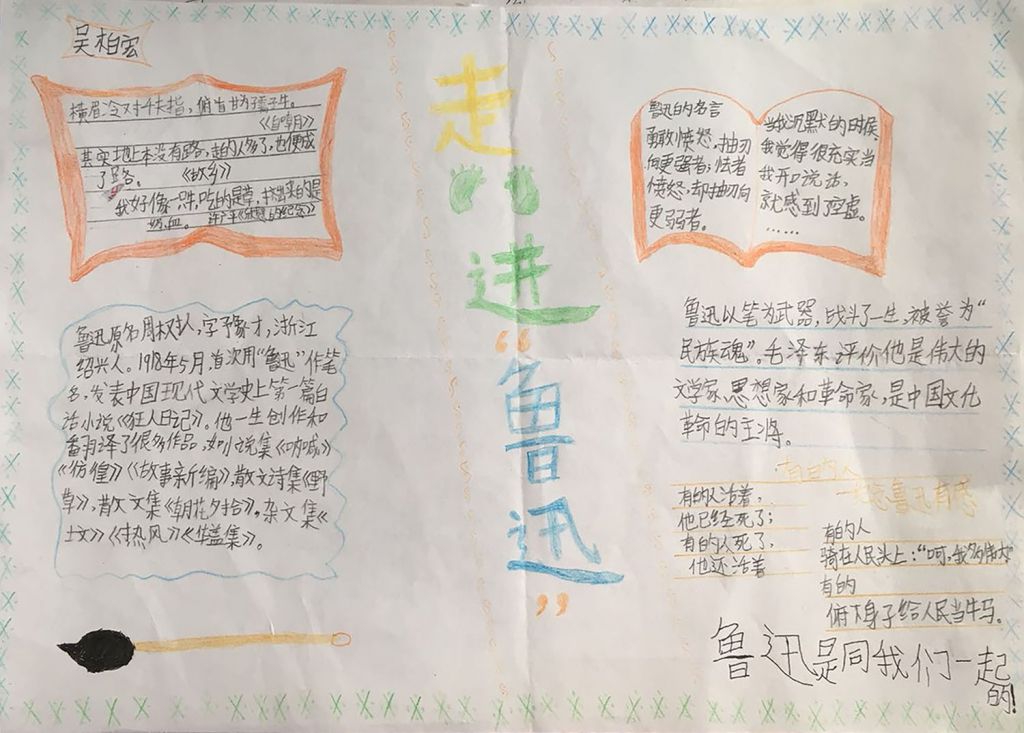 吴柏宏
横眉冷对千夫指，俯首甘为孺子牛。
《自嘲》
其实地上本没有路，走的人多了，也便成
了路。 《故乡》
我好像一只牛，吃的是草，挤出来的是
奶、血。
鲁迅原名周树人，字豫才，浙江
绍兴人。1918年5月，首次用“鲁迅”作笔
名，发表中国现代文学史上第一篇白
话小说《狂人日记》。他一生创作和
翻译了很多作品，如小说集《呐喊》
《彷徨》《故事新编》，散文诗集《野
草》，散文集《朝花夕拾》。杂文集《
坟》《热风》《华盖集》。
走
进
“
鲁
迅
”
鲁迅的名言
勇敢愤怒，抽刃
向更强者；怯者
愤怒，却抽刃向
更弱者。
当我沉默的时候
我觉得很充实当
我开口说话，
就感到了空虚。
……
鲁迅以笔为武器，战斗了一生，被誉为“
民族魂”。毛泽东评价他是伟大的
文学家、思想家和革命家，是中国文化
革命的主将。
有的人
鲁迅有感
有的人活着，
他已经死了；
有的人死了，
他还活着
有的人
骑在人民头上：“呵，我多伟大”
有的
俯下身子给人民当牛马。
鲁迅是同我们一起
的！